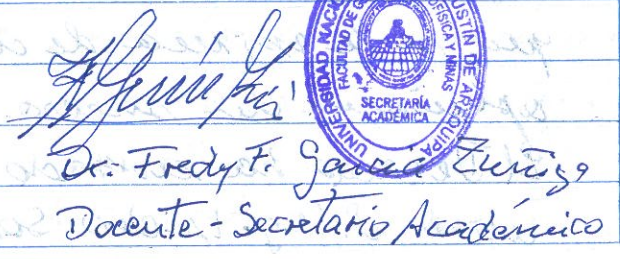 UNIVERSIDAD NACI
USTÍN DE AREQUIPA
FACULTAD DE G
OFÍSICA Y MINAS
SECRETARÍA
ACADÉMICA
Dr. Fredy F. García Zuñiga
Docente - Secretario Académico